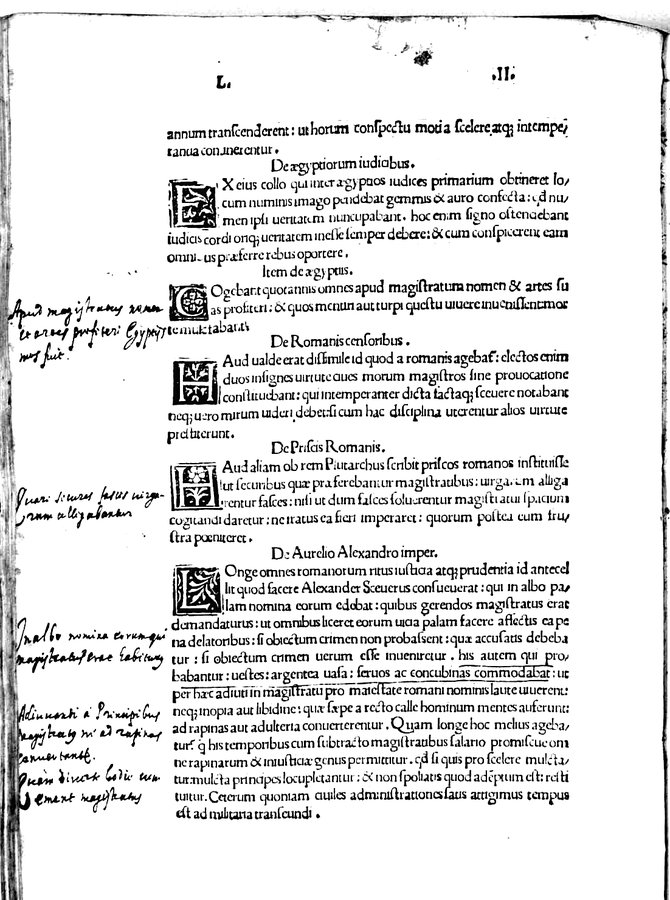 L. .II.
annum transcenderent: ut horum conspectu moti a scelere atq; intempe/
rantia continerentur.
De ægyptiorum iudicibus.
EX eius collo qui inter ægyptios iudices primarium obtineret lo/
cum numinis imago pendebat gemmis & auro confecta: qd nu/
men ipsi ueritatem nuncupabant. hoc enim signo ostendebant
iudicis cordi oriq; ueritatem inesse semper debere: & cum conspicerent eam
omnibus præferre rebus oportere.
Item de ægyptiis.
COgebant quotannis omnes apud magistratum nomen & artes su
as profiteri: & quos mentiri aut turpi questu uiuere inuenissent mor
te mulctabant.
Apud magistratus nomen
et artes profiteri Egyptiis
mos fuit.
De Romanis censoribus.
HAud ualde erat dissimile id quod a romanis agebat̃: electos enim
duos insignes uirtute ciues morum magistros sine prouocatione
constituebant: qui intemperanter dicta factaq; seuere notabant
neq; uero mirum uideri debet: si cum hac disciplina uterentur alios uirtute
prestiterunt.
De Priscis Romanis.
HAud aliam ob rem Plutarchus scribit priscos romanos instituisse
ut securibus quæ præferebantur magistratibus: uirgarum alliga
rentur fasces: nisi ut dum fasces soluerentur magistratui spacium
cogitandi daretur: ne iratus ea fieri imperaret: quorum postea eum fru/
stra pœniteret.
Quari secures fascis virga-
rum alligabantur
De Aurelio Alexandro imper.
LOnge omnes romanorum ritus iusticia atq; prudentia id antecel
lit quod facere Alexander Seeuerus consueuerat: qui in albo pa/
lam nomina eorum edebat: quibus gerendos magistratus erat
demandaturus: ut omnibus liceret eorum uicia palam facere affectis ea pe
na delatoribus: si obiectum crimen non probassent: quæ accusatis debeba
tur: si obiectum crimen uerum esse inueniretur. his autem qui pro/
babantur: uestes: argentea uasa: seruos ac concubinas commodabat: ut
per hæc adiuti in magistratu pro maiestate romani nominis laute uiuerent:
neq; inopia aut libidine: quæ sæpe a recto calle hominum mentes auferunt:
ad rapinas aut adulteria conuerterentur. Quam longe hoc melius ageba/
tur: q̃ his temporibus cum subtracto magistratibus salario promiscue om
ne rapinarum & iniusticiæ genus permittitur. qd si quis pro scelere mulcta/
tur: mulcta principes locupletantur: & non spoliatis quod ademptum est: resti
tuitur. Ceterum quoniam ciuiles administrationes satis attigimus tempus
est ad militaria transeundi.
In albo nomina eorum qui
magistratus erat habituri
Adiuvanti a Principibus
magistratus ni ad rapinas
convertantr.
hodie
magistratus